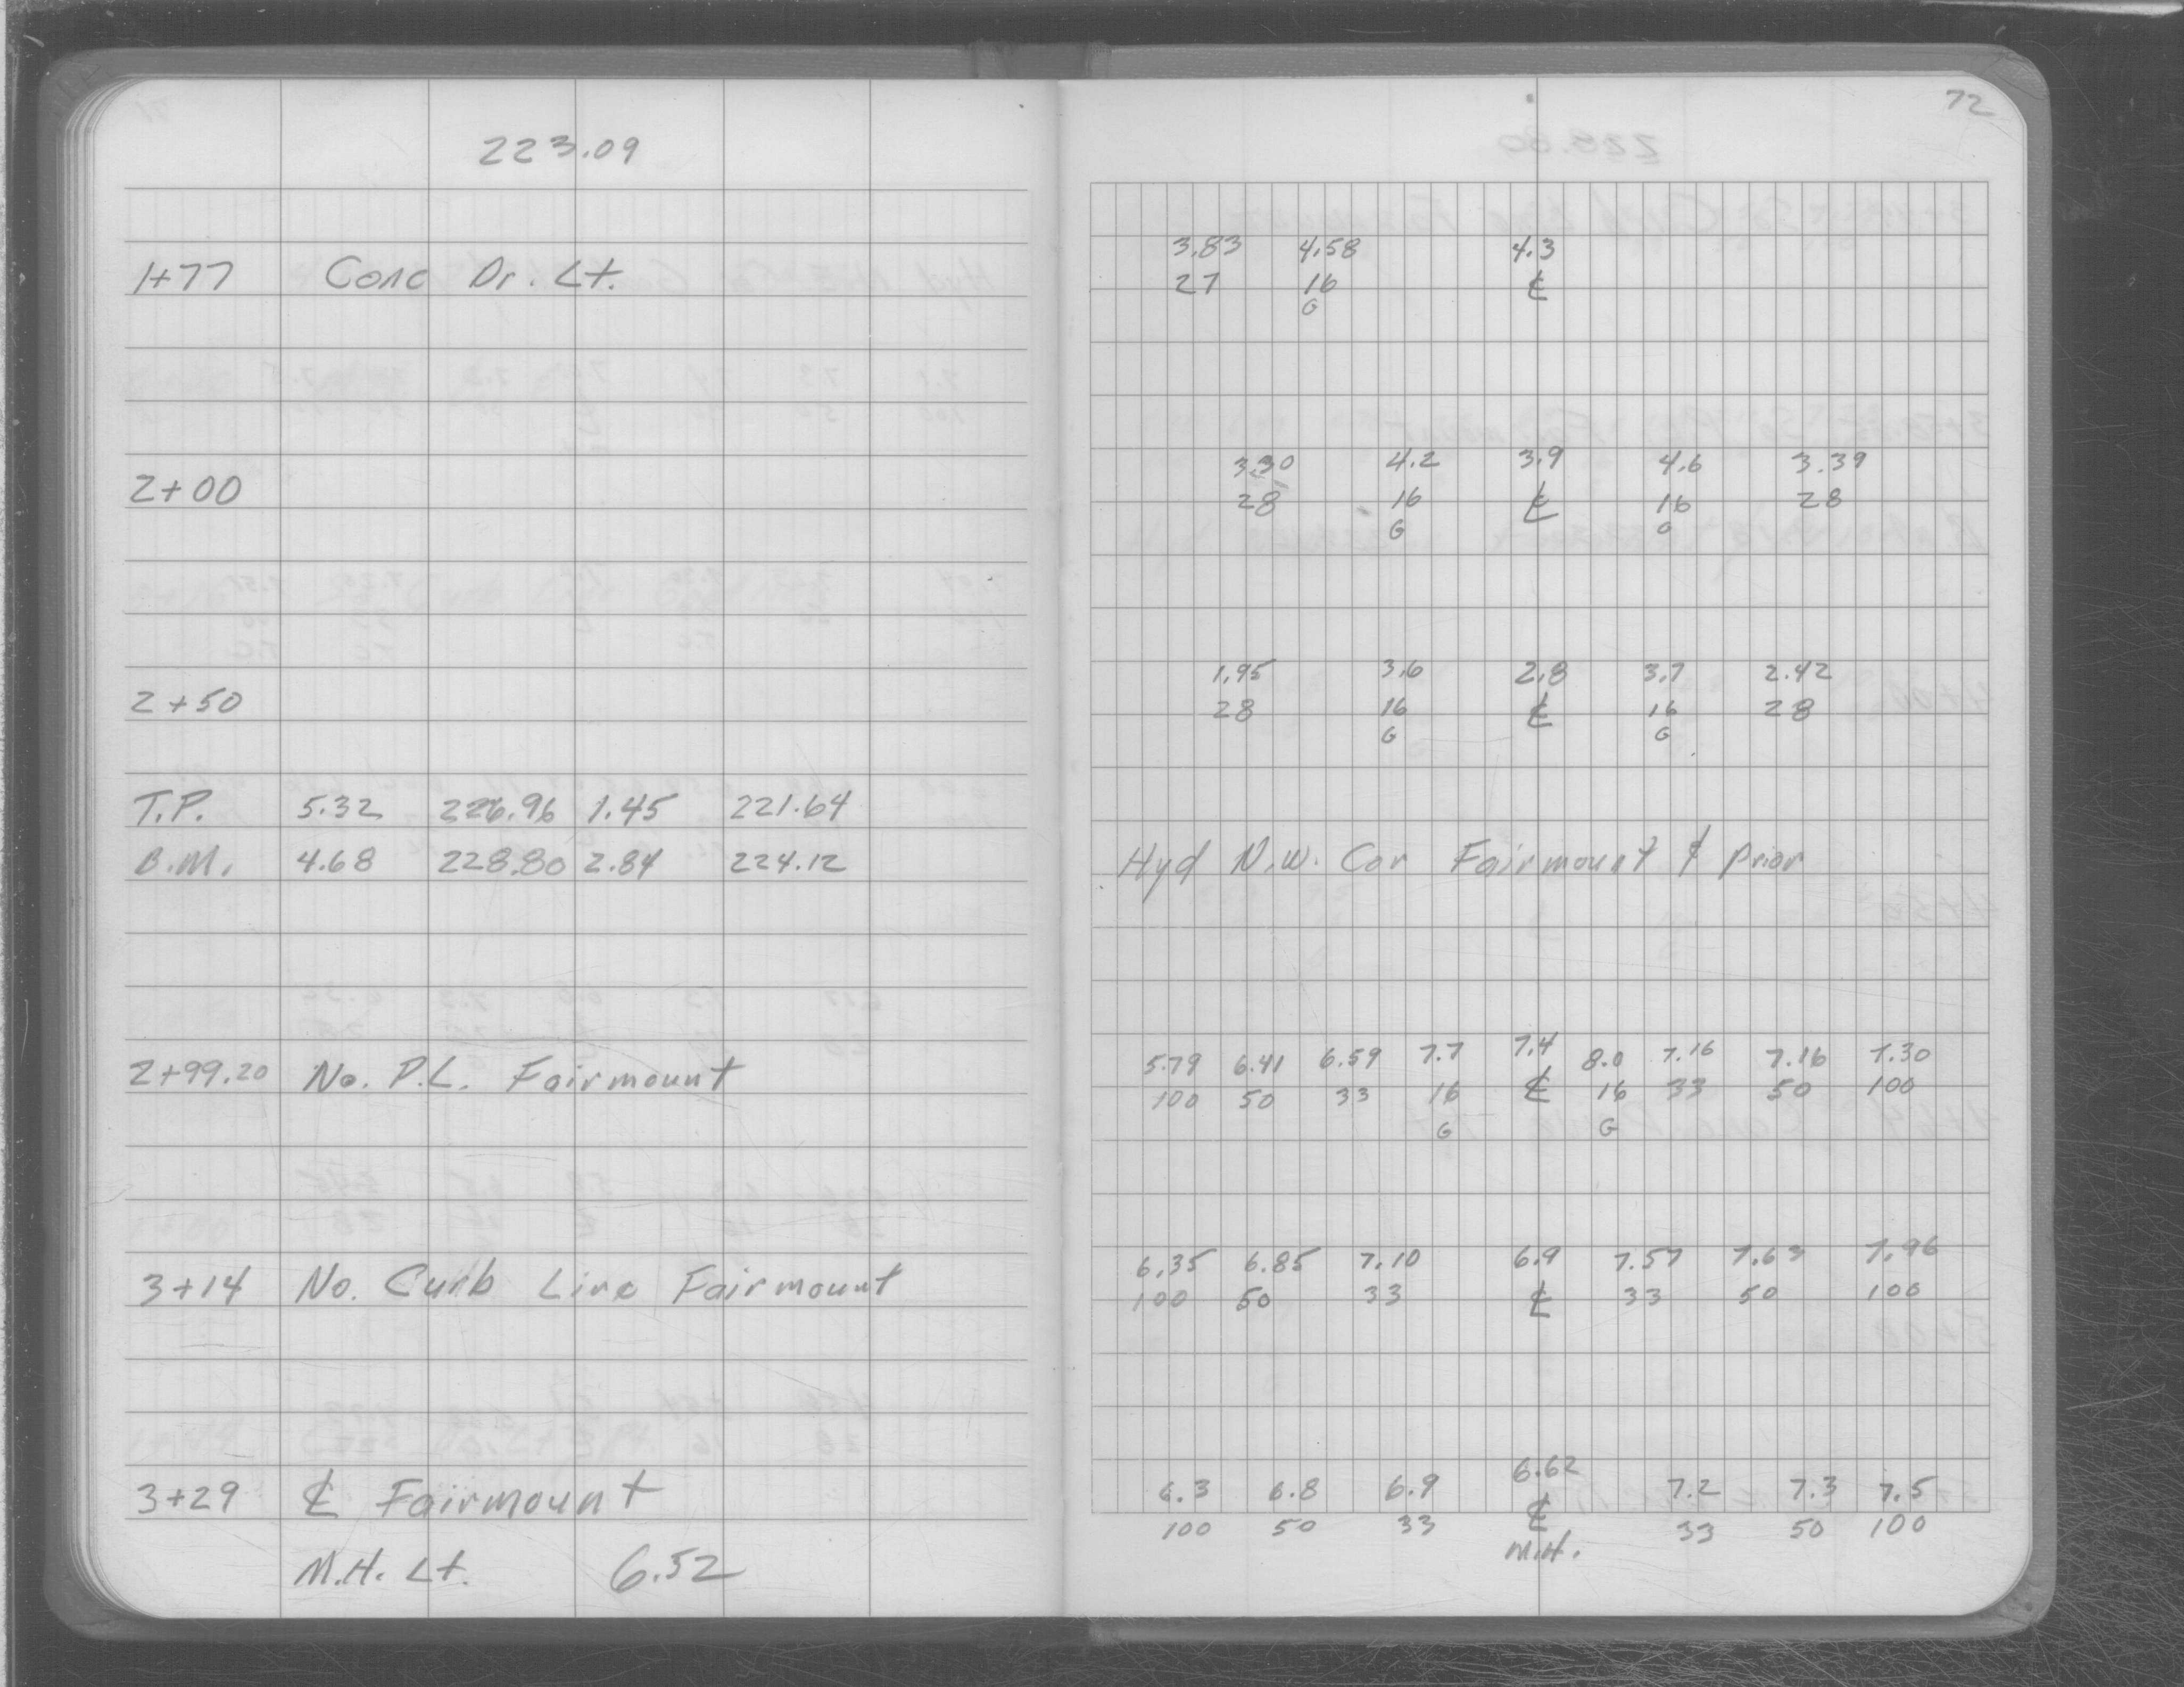 223.09
1+77 Conc Dr. Lt.
2+00
2+50
T.P. 5.32 226.96 1.45 221.64
B.M. 4.68 228.80 2.84 224.12
2+99.20 No. P.L. Fairmount
3+14 No. Curb Line Fairmount
3+29 ℄ Fairmount
M.H. Lt. 6.52
72
3.83 4.58 4.3
27 16 ℄
G
3.30 4.2 3.9 4.6 3.39
28 16 ℄ 16 28
G G
1.95 3.6 2.8 3.7 2.42
28 16 ℄ 16 28
G G
Hyd N.W. Cor Fairmount & Prior
5.79 6.41 6.59 7.7 7.4 8.0 7.16 7.16 7.30
100 50 33 16 ℄ 16 33 50 100
G G
6.35 6.85 7.10 6.9 7.57 7.63 7.96
100 50 33 ℄ 33 50 100
6.62
6.3 6.8 6.9 ℄ 7.2 7.3 7.5
100 50 33 M.H. 33 50 100